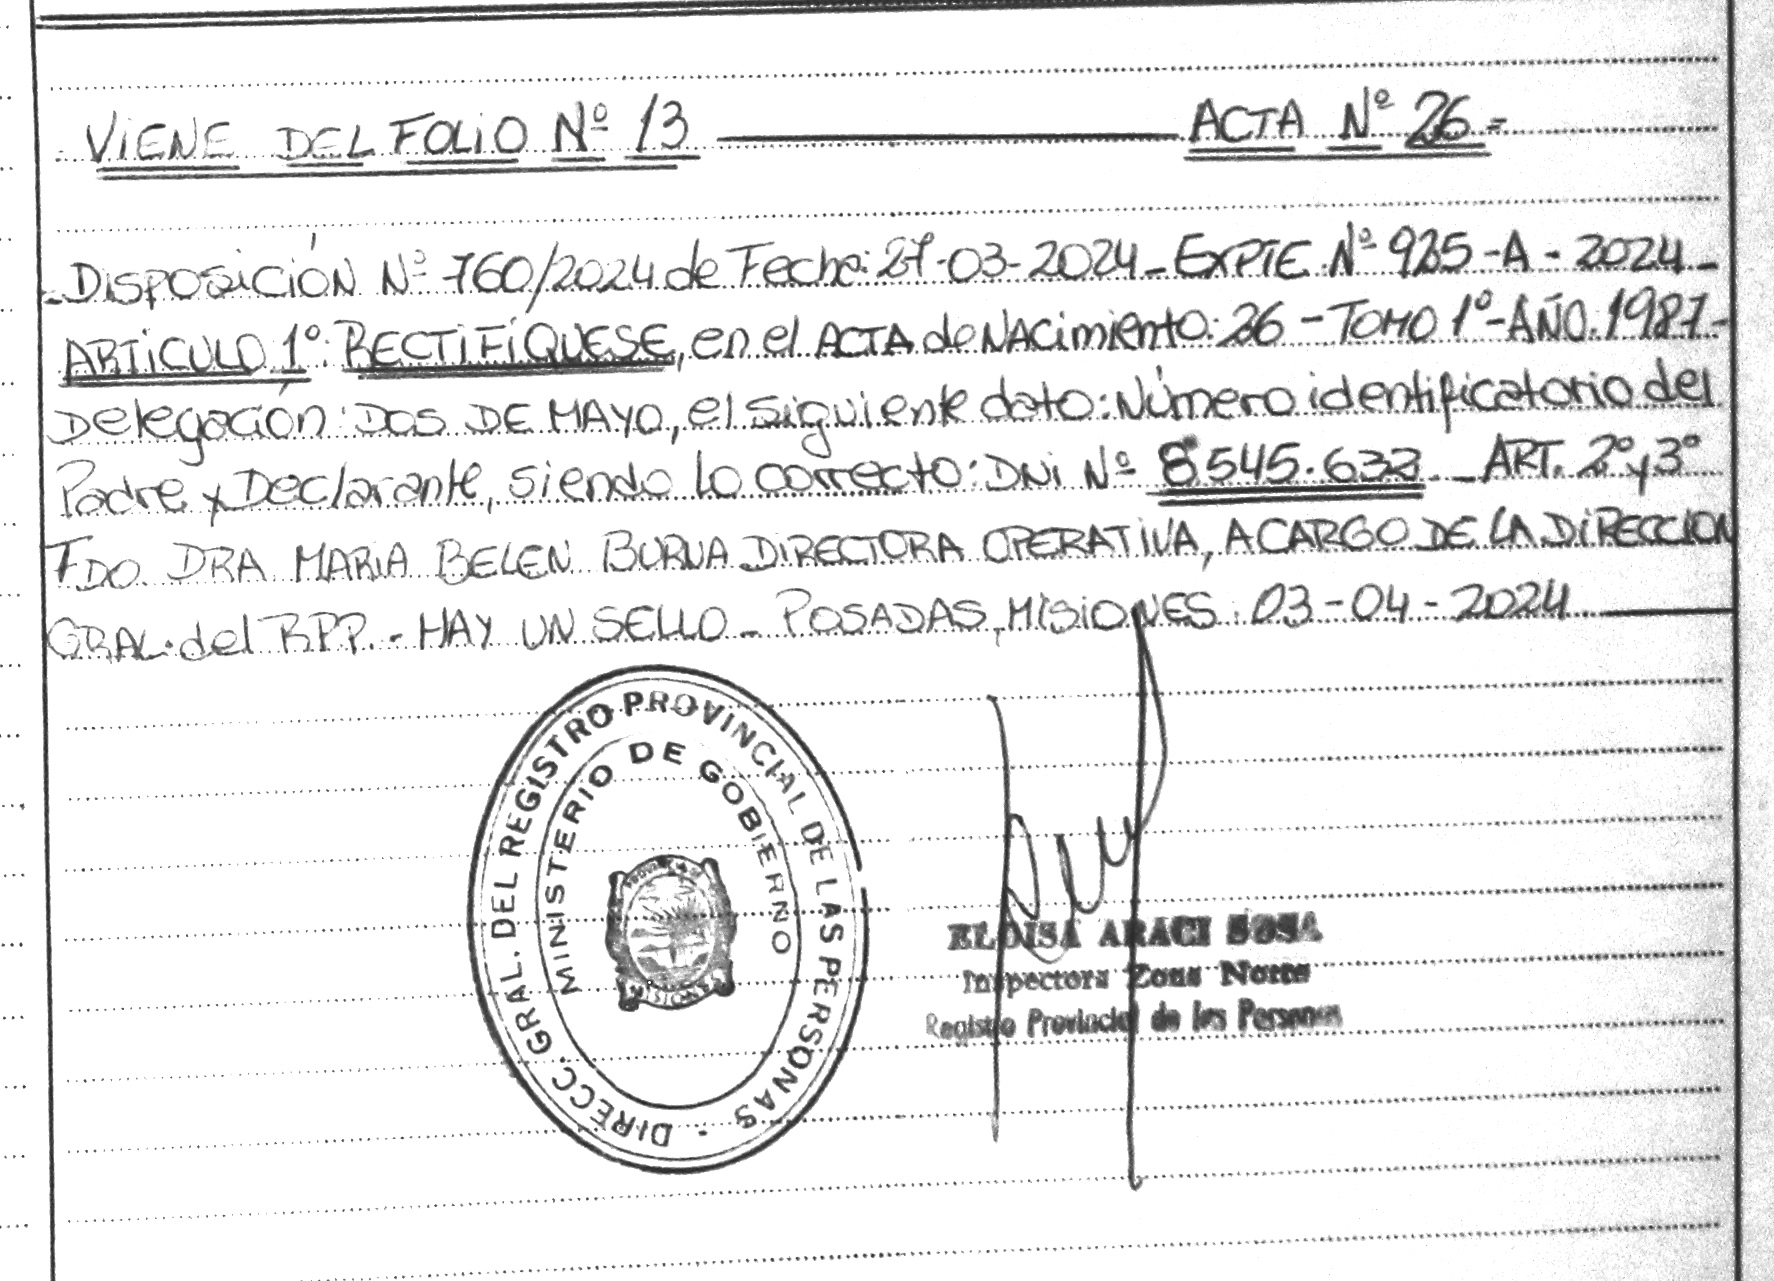 VIENE DEL FOLIO Nº 13 ACTA Nº 26=
DISPOSICIÓN Nº 760/2024 de Fecha: 27-03-2024 - EXPTE Nº 925-A-2024-
ARTICULO 1º: RECTIFÍQUESE, en el ACTA de NACimiento: 26 - TOMO 1º - AÑO. 1987.-
Delegación: DOS DE MAYO, el siguiente dato: Número identificatorio del
Padre y Declarante, siendo lo correcto: DNI Nº 8545.632 - ART. 2º y 3º
FDO. DRA MARIA BELEN BURNA DIRECTORA OPERATIVA, A CARGO DE LA DIRECCION
GRAL. del RPP. - HAY UN SELLO - POSADAS, MISIONES: 03-04-2024
DIRECC. GRAL. DEL REGISTRO PROVINCIAL DE LAS PERSONAS
MINISTERIO DE GOBIERNO
ELOISA ARACI SOSA
Inspectora Zona Norte
Registro Provincial de las Personas